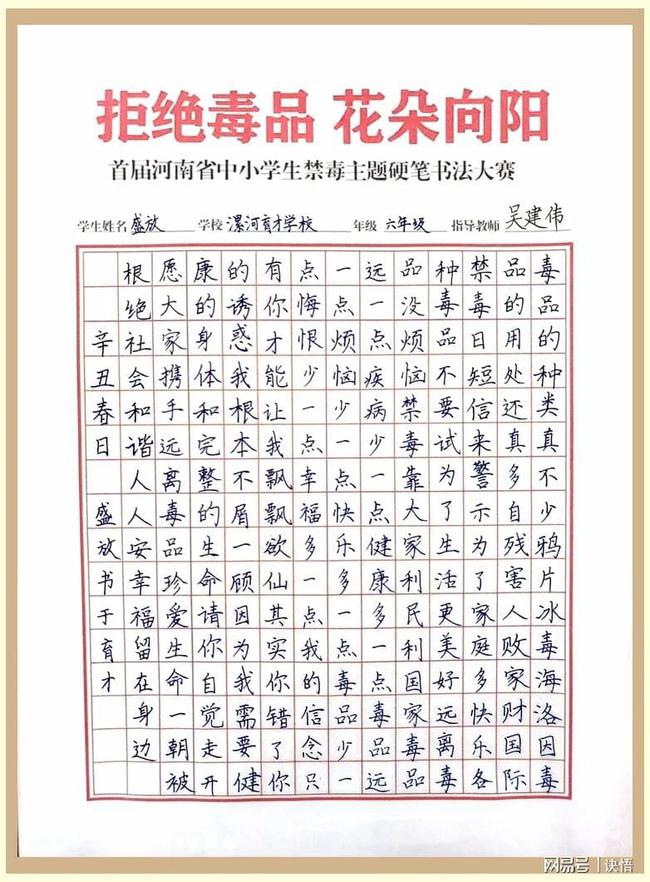 拒绝毒品 花朵向阳
首届河南省中小学生禁毒主题硬笔书法大赛
学生姓名 盛放 学校 漯河育才学校 年级 六年级 指导教师 吴建伟
毒品的种类真不少鸦片冰毒海洛因毒
品的用处还真多自残害人败家财国际
禁毒日短信来警示为了家庭多快乐各
种毒品不要试为了生活更美好远离毒
品没烦恼禁毒靠大家利民利国家毒品
远一点疾病少一点健康多一点毒品远
一点烦恼少一点快乐多一点毒品少一
点悔恨少一点幸福多一点我的信念只
有你才能让我飘飘欲仙其实你错了你
的诱惑我根本不屑一顾因为我需要健
康的身体和完整的生命请你自觉走开
愿大家携手远离毒品珍爱生命一朝被
根绝社会和谐人人安幸福留在身边
辛丑春日 盛放书于育才
网易号 | 诀悟